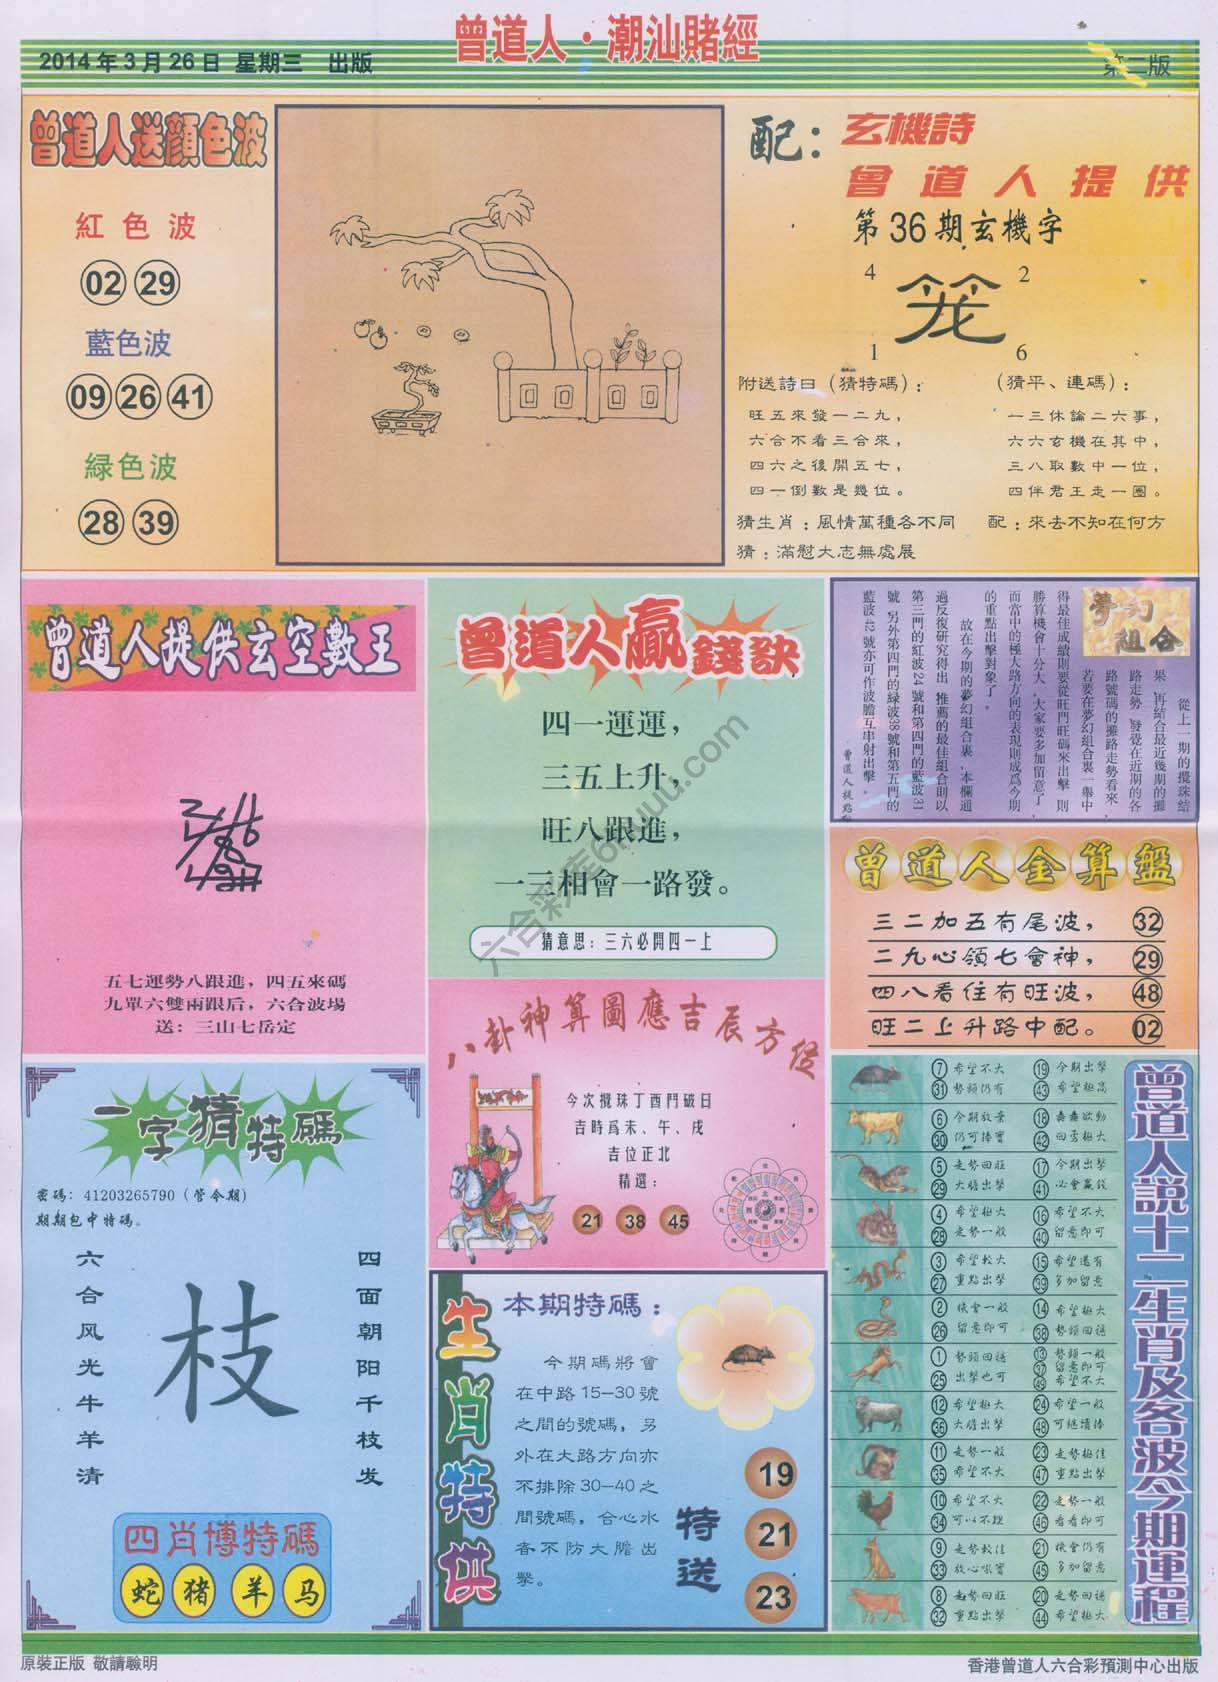 曾道人·潮汕賭經
2014年3月26日 星期三 出版
第二版
曾道人送顔色波
紅色波
02 29
藍色波
09 26 41
緑色波
28 39
配：玄機詩
曾道人提供
第36期玄機字
4 2
笼
1 6
附送詩曰（猜特碼）：
旺五來發一二九，
六合不看三合來，
四六之後開五七，
四一倒數是幾位。
（猜平、連碼）：
一三休論二六事，
六六玄機在其中，
三八取數中一位，
四伴君王走一圈。
猜生肖：風情萬種各不同 配：來去不知在何方
猜：滿慰大志無處展
曾道人提供玄空數王
五七運勢八跟進，四五來碼
九單六雙兩跟后，六合波場
送：三山七岳定
曾道人贏錢訣
四一運運，
三五上升，
旺八跟進，
一三相會一路發。
猜意思：三六必開四一上
夢幻組合
從上一期的攪珠結
果，再結合最近幾期的攤
路走勢，發覺在近期的各
路號碼的攤路走勢看來，
若要在夢幻組合裏一舉中
得最佳成績則要從旺門旺碼來出擊，則
勝算機會十分大，大家要多加留意了，
而當中的極大路方向的表現則成爲今期
的重點出擊對象了。
故在今期的夢幻組合裏，本欄通
過反復研究得出，推薦的最佳組合則以
第三門的紅波24號和第四門的藍波31
號，另外第四門的緑波38號和第五門的
藍波42號亦可作波膽互串射出擊。
曾道人金算盤
三二加五有尾波， 32
二九心領七會神， 29
四八看住有旺波， 48
旺二上升路中配。 02
八卦神算圖應吉辰方位
今次攪珠丁酉鬥破日
吉時爲未、午、戌
吉位正北
精選：
21 38 45
一字猜特碼
密碼：41203265790（管令期）
期期包中特碼。
六合风光牛羊清
枝
四面朝阳千枝发
四肖博特碼
蛇 猪 羊 马
生肖特供
本期特碼：
今期碼將會
在中路15—30號
之間的號碼，另
外在大路方向亦
不排除30—40之
間號碼，合心水
者不防大膽出
擊。
特送
19
21
23
曾道人説十二生肖及各波今期運程
7 希望不大 19 今期出擊
31 勢頭仍有 43 希望極高
6 今期放棄 18 蠢蠢欲動
30 仍可捧實 42 回勇極大
5 走勢回旺 17 今期出擊
29 大膽出擊 41 必會贏錢
4 希望極大 16 希望不大
28 走勢一般 40 留意即可
3 希望較大 15 希望還有
27 重點出擊 39 多加留意
2 機會一般 14 希望極大
26 留意即可 38 勢頭回穩
1 勢頭回穩 13 勢頭一般
37 留意即可
25 出擊也可 49 希望不大
12 希望極大 24 希望一般
36 大膽出擊 48 可繼續捧
11 走勢一般 23 走勢極佳
35 希望不大 47 重點出擊
10 希望不大 22 走勢一般
34 可以不理 46 看看即可
9 走勢較佳 21 機會仍有
33 放心吼實 45 多加留意
8 走勢回旺 20 走勢回穩
32 重點出擊 44 希望極大
原裝正版 敬請驗明
香港曾道人六合彩預測中心出版